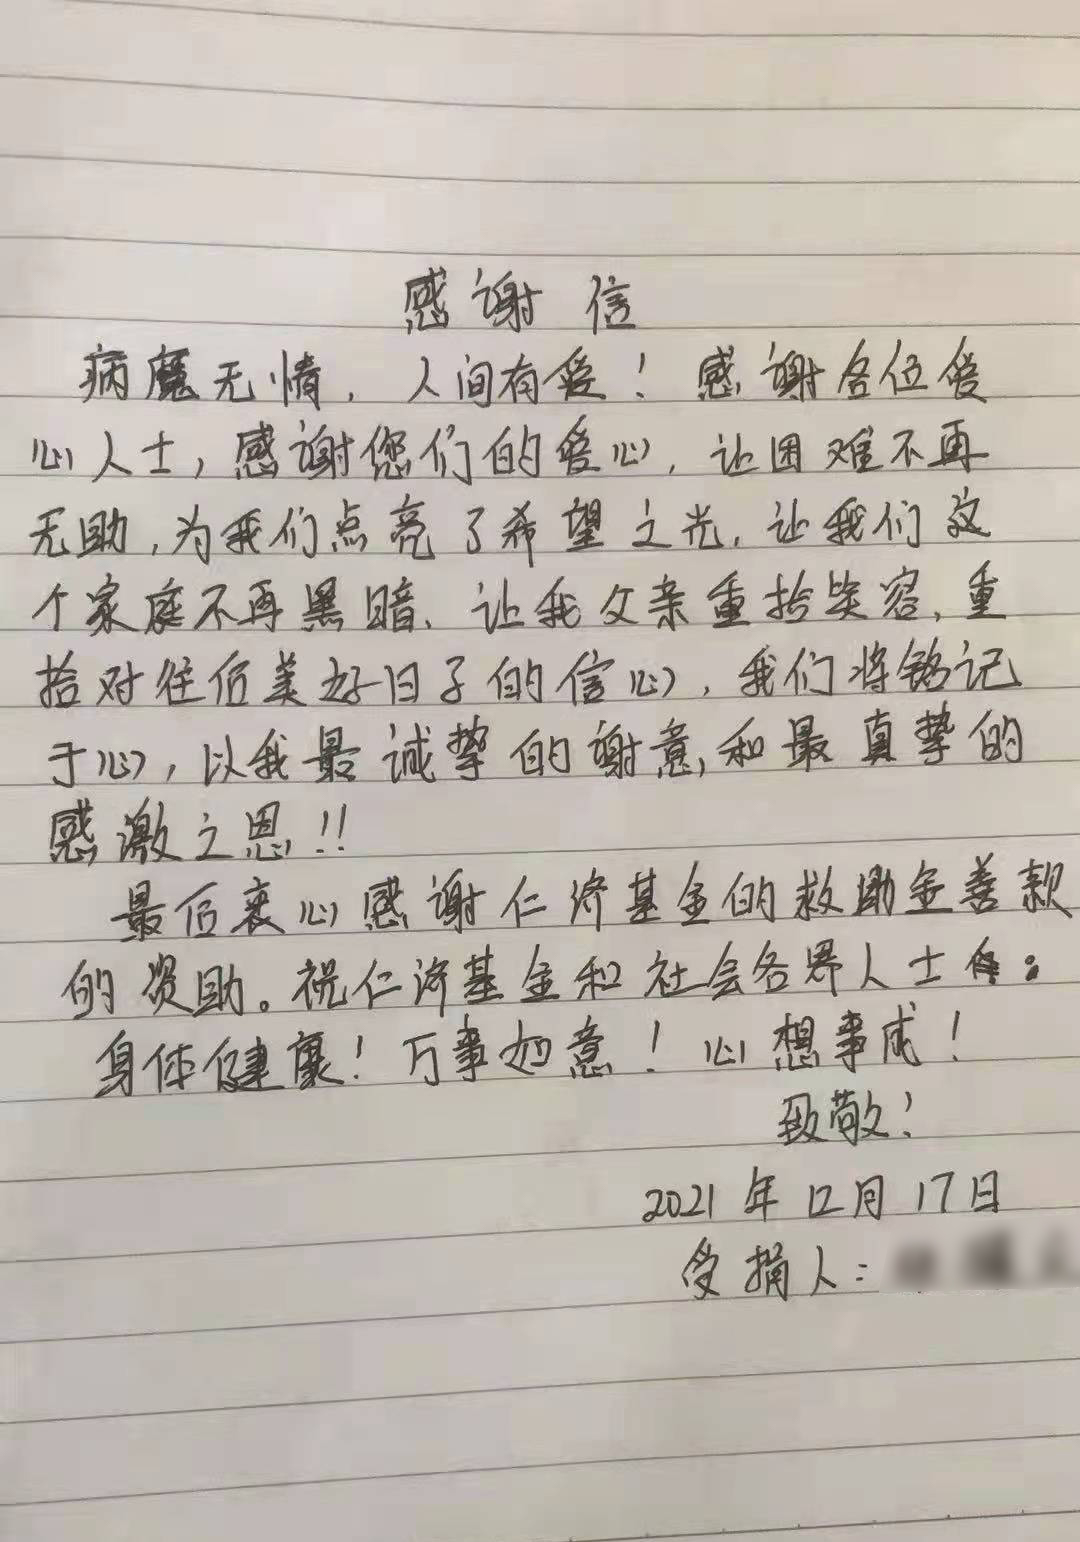 感谢信
病魔无情，人间有爱！感谢各位爱
心人士，感谢您们的爱心，让困难不再
无助，为我们点亮了希望之光，让我们这
个家庭不再黑暗、让我父亲重拾笑容、重
拾对往后美好日子的信心，我们将铭记
于心，以我最诚挚的谢意，和最真挚的
感激之恩！！
最后衷心感谢仁济基金的救助金善款
的资助。祝仁济基金和社会各界人士：
身体健康！万事如意！心想事成！
致敬！
2021年12月17日
受捐人：